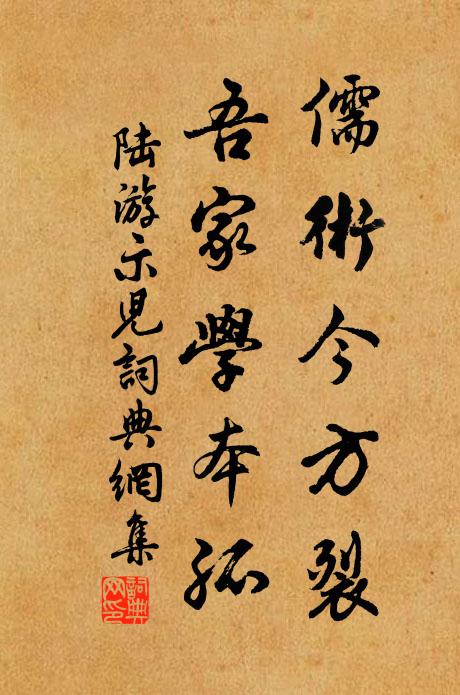 儒術今方裂
吾家學本孤
陸游示兒詞典網集
詞典
網印